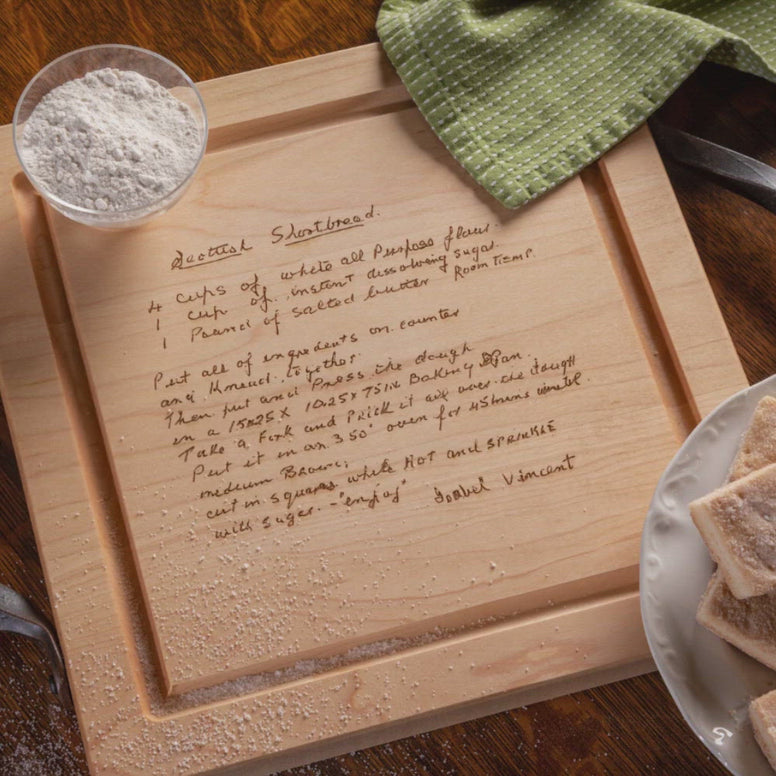 Scottish Shortbread.
4 cups of white all Purpose flour.
1 cup of instant dissolving sugar.
1 Pound of salted butter Room TEMP.
Put all of ingredients on counter
and Knead together.
Then put and Press the dough
in a 15x25 x 10.25x.75in Baking Pan.
Take a Fork and Prick it all over the dough
Put it in an 350° oven for 45 mins until
medium Brown;
cut in squares while HOT and SPRINKLE
with sugar - "enjoy" Isabel Vincent